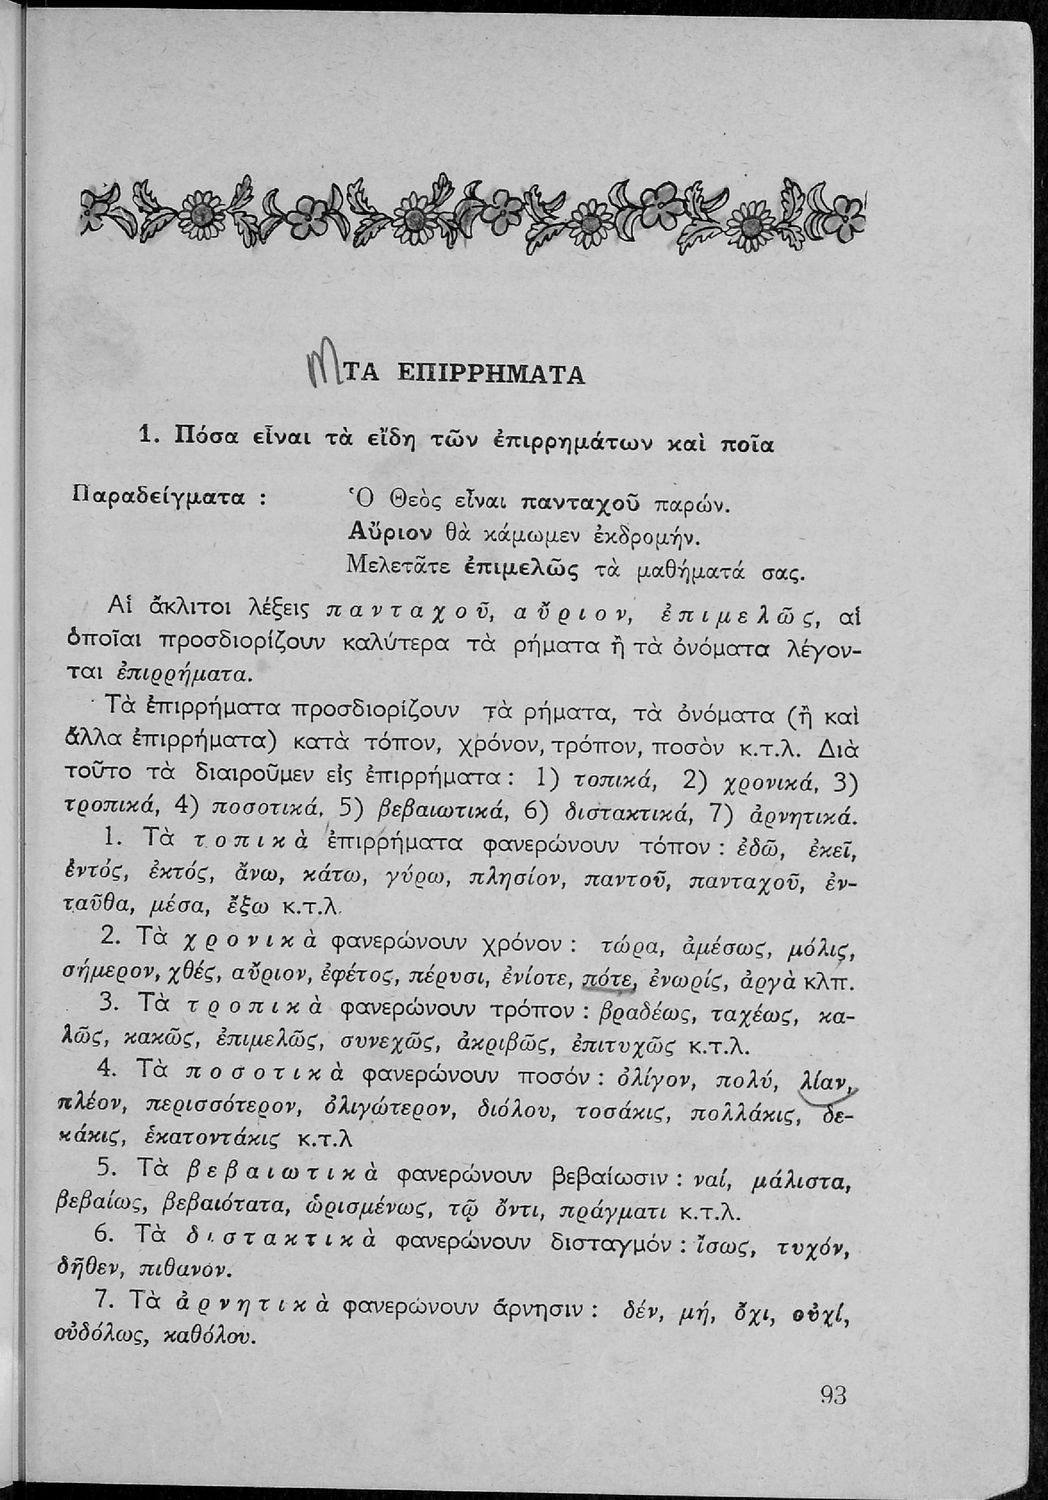 ΤΑ ΕΠΙΡΡΗΜΑΤΑ
1. Πόσα εἶναι τὰ εἴδη τῶν ἐπιρρημάτων καὶ ποῖα
Παραδείγματα : Ὁ Θεὸς εἶναι πανταχοῦ παρών.
Αὔριον θὰ κάμωμεν ἐκδρομήν.
Μελετᾶτε ἐπιμελῶς τὰ μαθήματά σας.
Αἱ ἄκλιτοι λέξεις πανταχοῦ, αὔριον, ἐπιμελῶς, αἱ
ὁποῖαι προσδιορίζουν καλύτερα τὰ ρήματα ἢ τὰ ὀνόματα λέγον-
ται ἐπιρρήματα.
Τὰ ἐπιρρήματα προσδιορίζουν τὰ ρήματα, τὰ ὀνόματα (ἢ καὶ
ἄλλα ἐπιρρήματα) κατὰ τόπον, χρόνον, τρόπον, ποσὸν κ.τ.λ. Διὰ
τοῦτο τὰ διαιροῦμεν εἰς ἐπιρρήματα : 1) τοπικά, 2) χρονικά, 3)
τροπικά, 4) ποσοτικά, 5) βεβαιωτικά, 6) διστακτικά, 7) ἀρνητικά.
1. Τὰ τοπικὰ ἐπιρρήματα φανερώνουν τόπον : ἐδῶ, ἐκεῖ,
ἐντός, ἐκτός, ἄνω, κάτω, γύρω, πλησίον, παντοῦ, πανταχοῦ, ἐν-
ταῦθα, μέσα, ἔξω κ.τ.λ.
2. Τὰ χρονικὰ φανερώνουν χρόνον : τώρα, ἀμέσως, μόλις,
σήμερον, χθές, αὔριον, ἐφέτος, πέρυσι, ἐνίοτε, πότε, ἐνωρίς, ἀργὰ κλπ.
3. Τὰ τροπικὰ φανερώνουν τρόπον : βραδέως, ταχέως, κα-
λῶς, κακῶς, ἐπιμελῶς, συνεχῶς, ἀκριβῶς, ἐπιτυχῶς κ.τ.λ.
4. Τὰ ποσοτικὰ φανερώνουν ποσόν : ὀλίγον, πολύ, λίαν,
πλέον, περισσότερον, ὀλιγώτερον, διόλου, τοσάκις, πολλάκις, δε-
κάκις, ἑκατοντάκις κ.τ.λ
5. Τὰ βεβαιωτικὰ φανερώνουν βεβαίωσιν : ναί, μάλιστα,
βεβαίως, βεβαιότατα, ὡρισμένως, τῷ ὄντι, πράγματι κ.τ.λ.
6. Τὰ διστακτικὰ φανερώνουν δισταγμόν : ἴσως, τυχόν,
δῆθεν, πιθανόν.
7. Τὰ ἀρνητικὰ φανερώνουν ἄρνησιν : δέν, μή, ὄχι, οὐχί,
οὐδόλως, καθόλου.
93